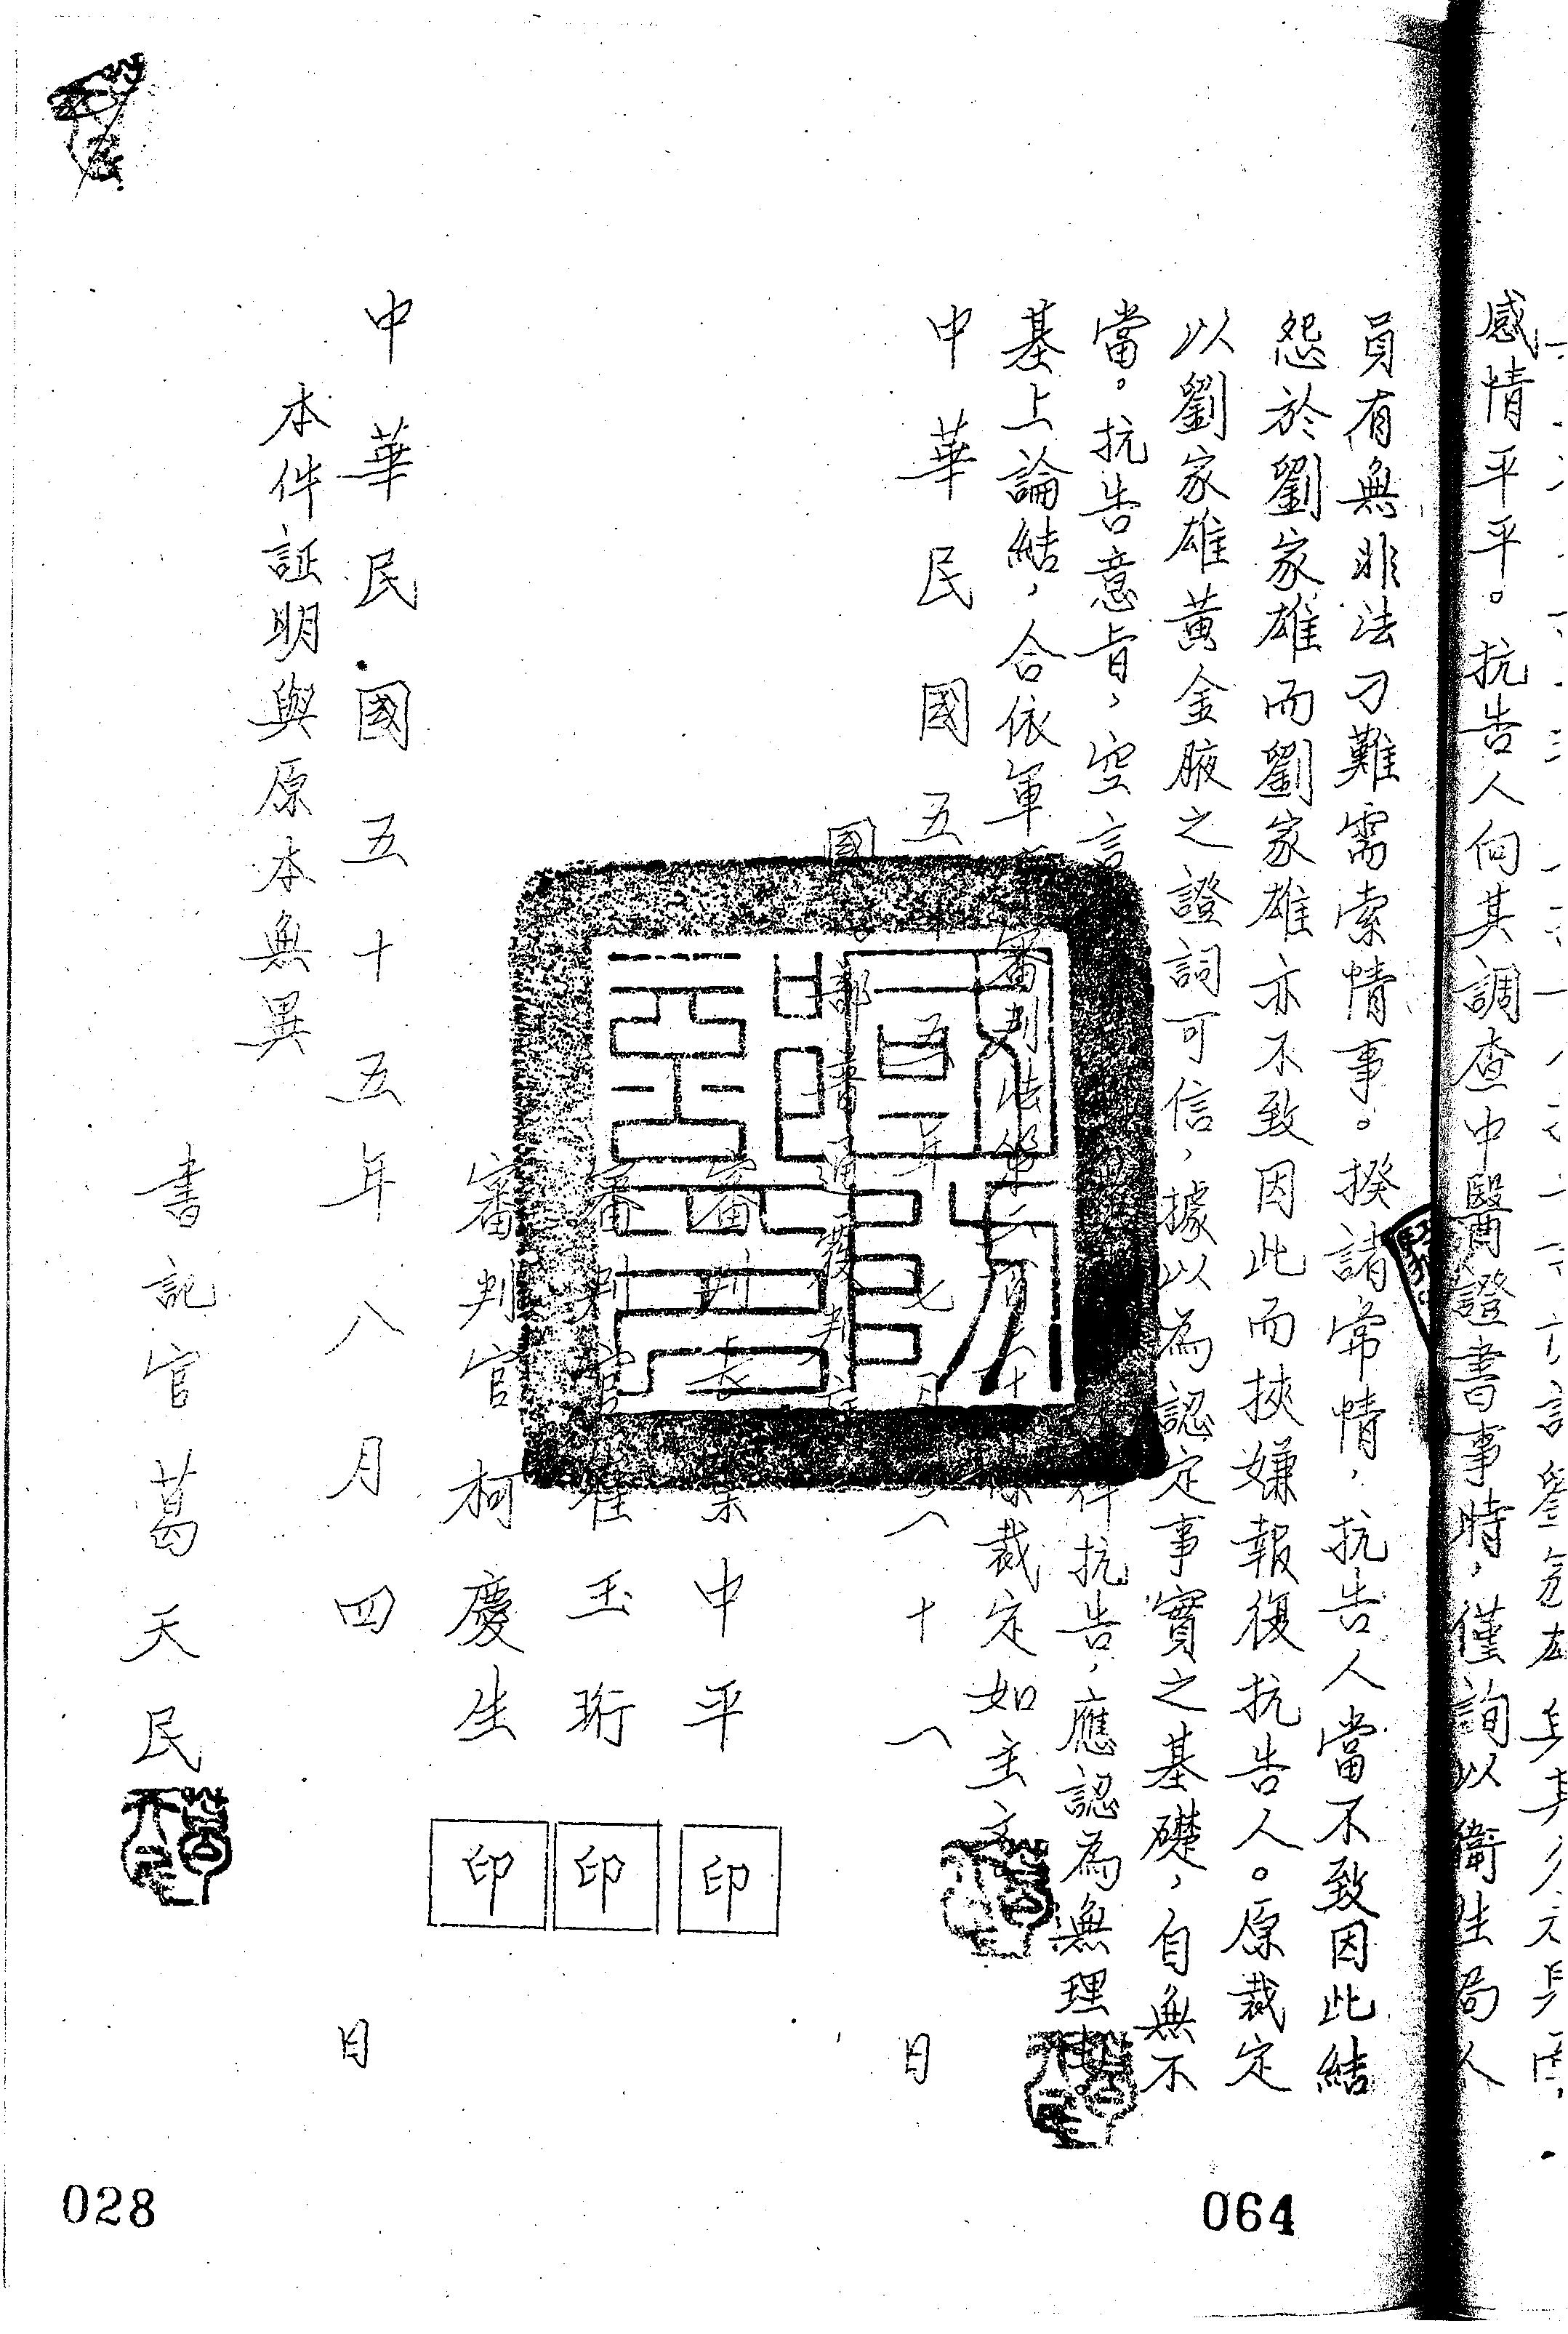 感情平平。抗告人向其調查中醫證書事時，僅詢以衛生局人
員有無非法刁難需索情事。揆諸常情，抗告人當不致因此結
怨於劉家雄而劉家雄亦不致因此而挾嫌報復抗告人。原裁定
以劉家雄黃金腋之證詞可信，據以為認定事實之基礎，自無不
當。抗告意旨，空言
件抗告，應認為無理
基上論結，合依軍
審判法第二百
裁定如主文
中華民國五十五年七月二十八日
國
部普通覆判
審判長
中平
印
審判官崔玉珩
印
審判官柯慶生
印
中華民國五十五年八月四日
本件証明與原本無異
書記官葛天民
028
064